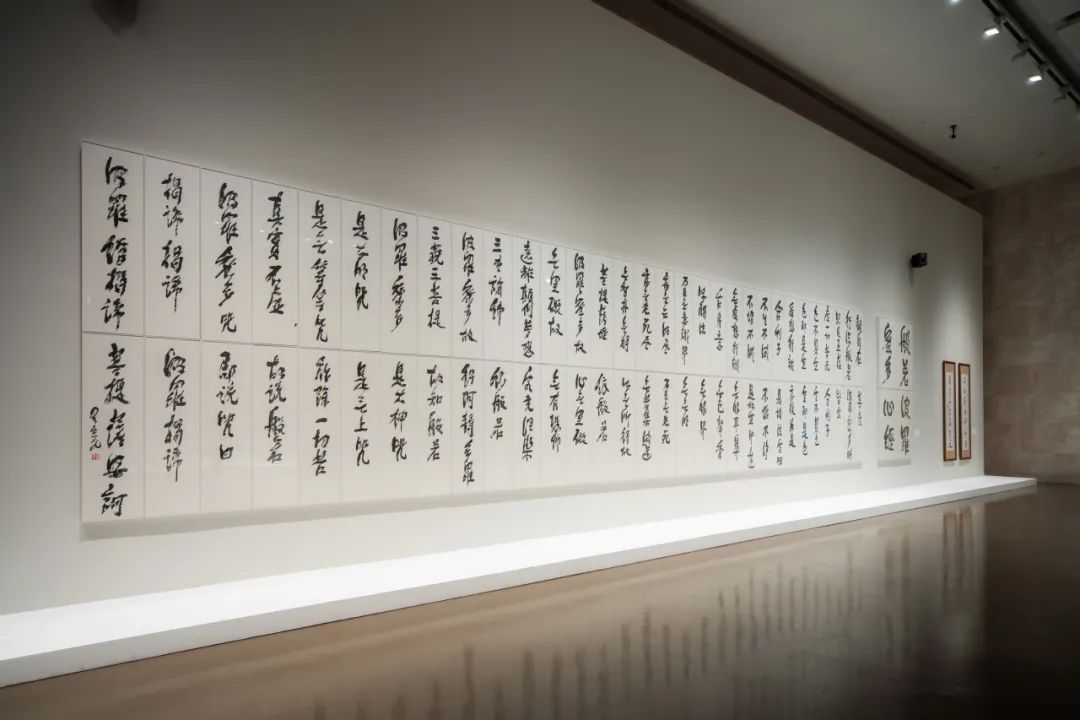 般若波羅
蜜多心經
觀自在
菩薩
行深般若
波羅蜜多時
照見五蘊
皆空
度一切苦厄
舍利子
色不異空
空不異色
色即是空
空即是色
受想行識
亦復如是
舍利子
是諸法空相
不生不滅
不垢不淨
不增不減
是故空中无色
无受想行識
无眼耳鼻
舌身意
无色聲香
无眼界
乃至无意識界
无无明
亦无无明盡
乃至无老死
亦无老死盡
无苦集滅道
无智亦无得
以无所得故
菩提薩埵
依般若
波羅蜜多故
心无罣礙
无罣礙故
无有恐怖
遠離顛倒夢想
究竟涅槃
三世諸佛
依般若
波羅蜜多故
得阿耨多羅
三藐三菩提
故知般若
波羅蜜多
是大神咒
是大明咒
是无上咒
是无等等咒
能除一切苦
真實不虛
故說般若
波羅蜜多咒
即說咒曰
揭諦揭諦
波羅揭諦
波羅僧揭諦
菩提薩婆訶